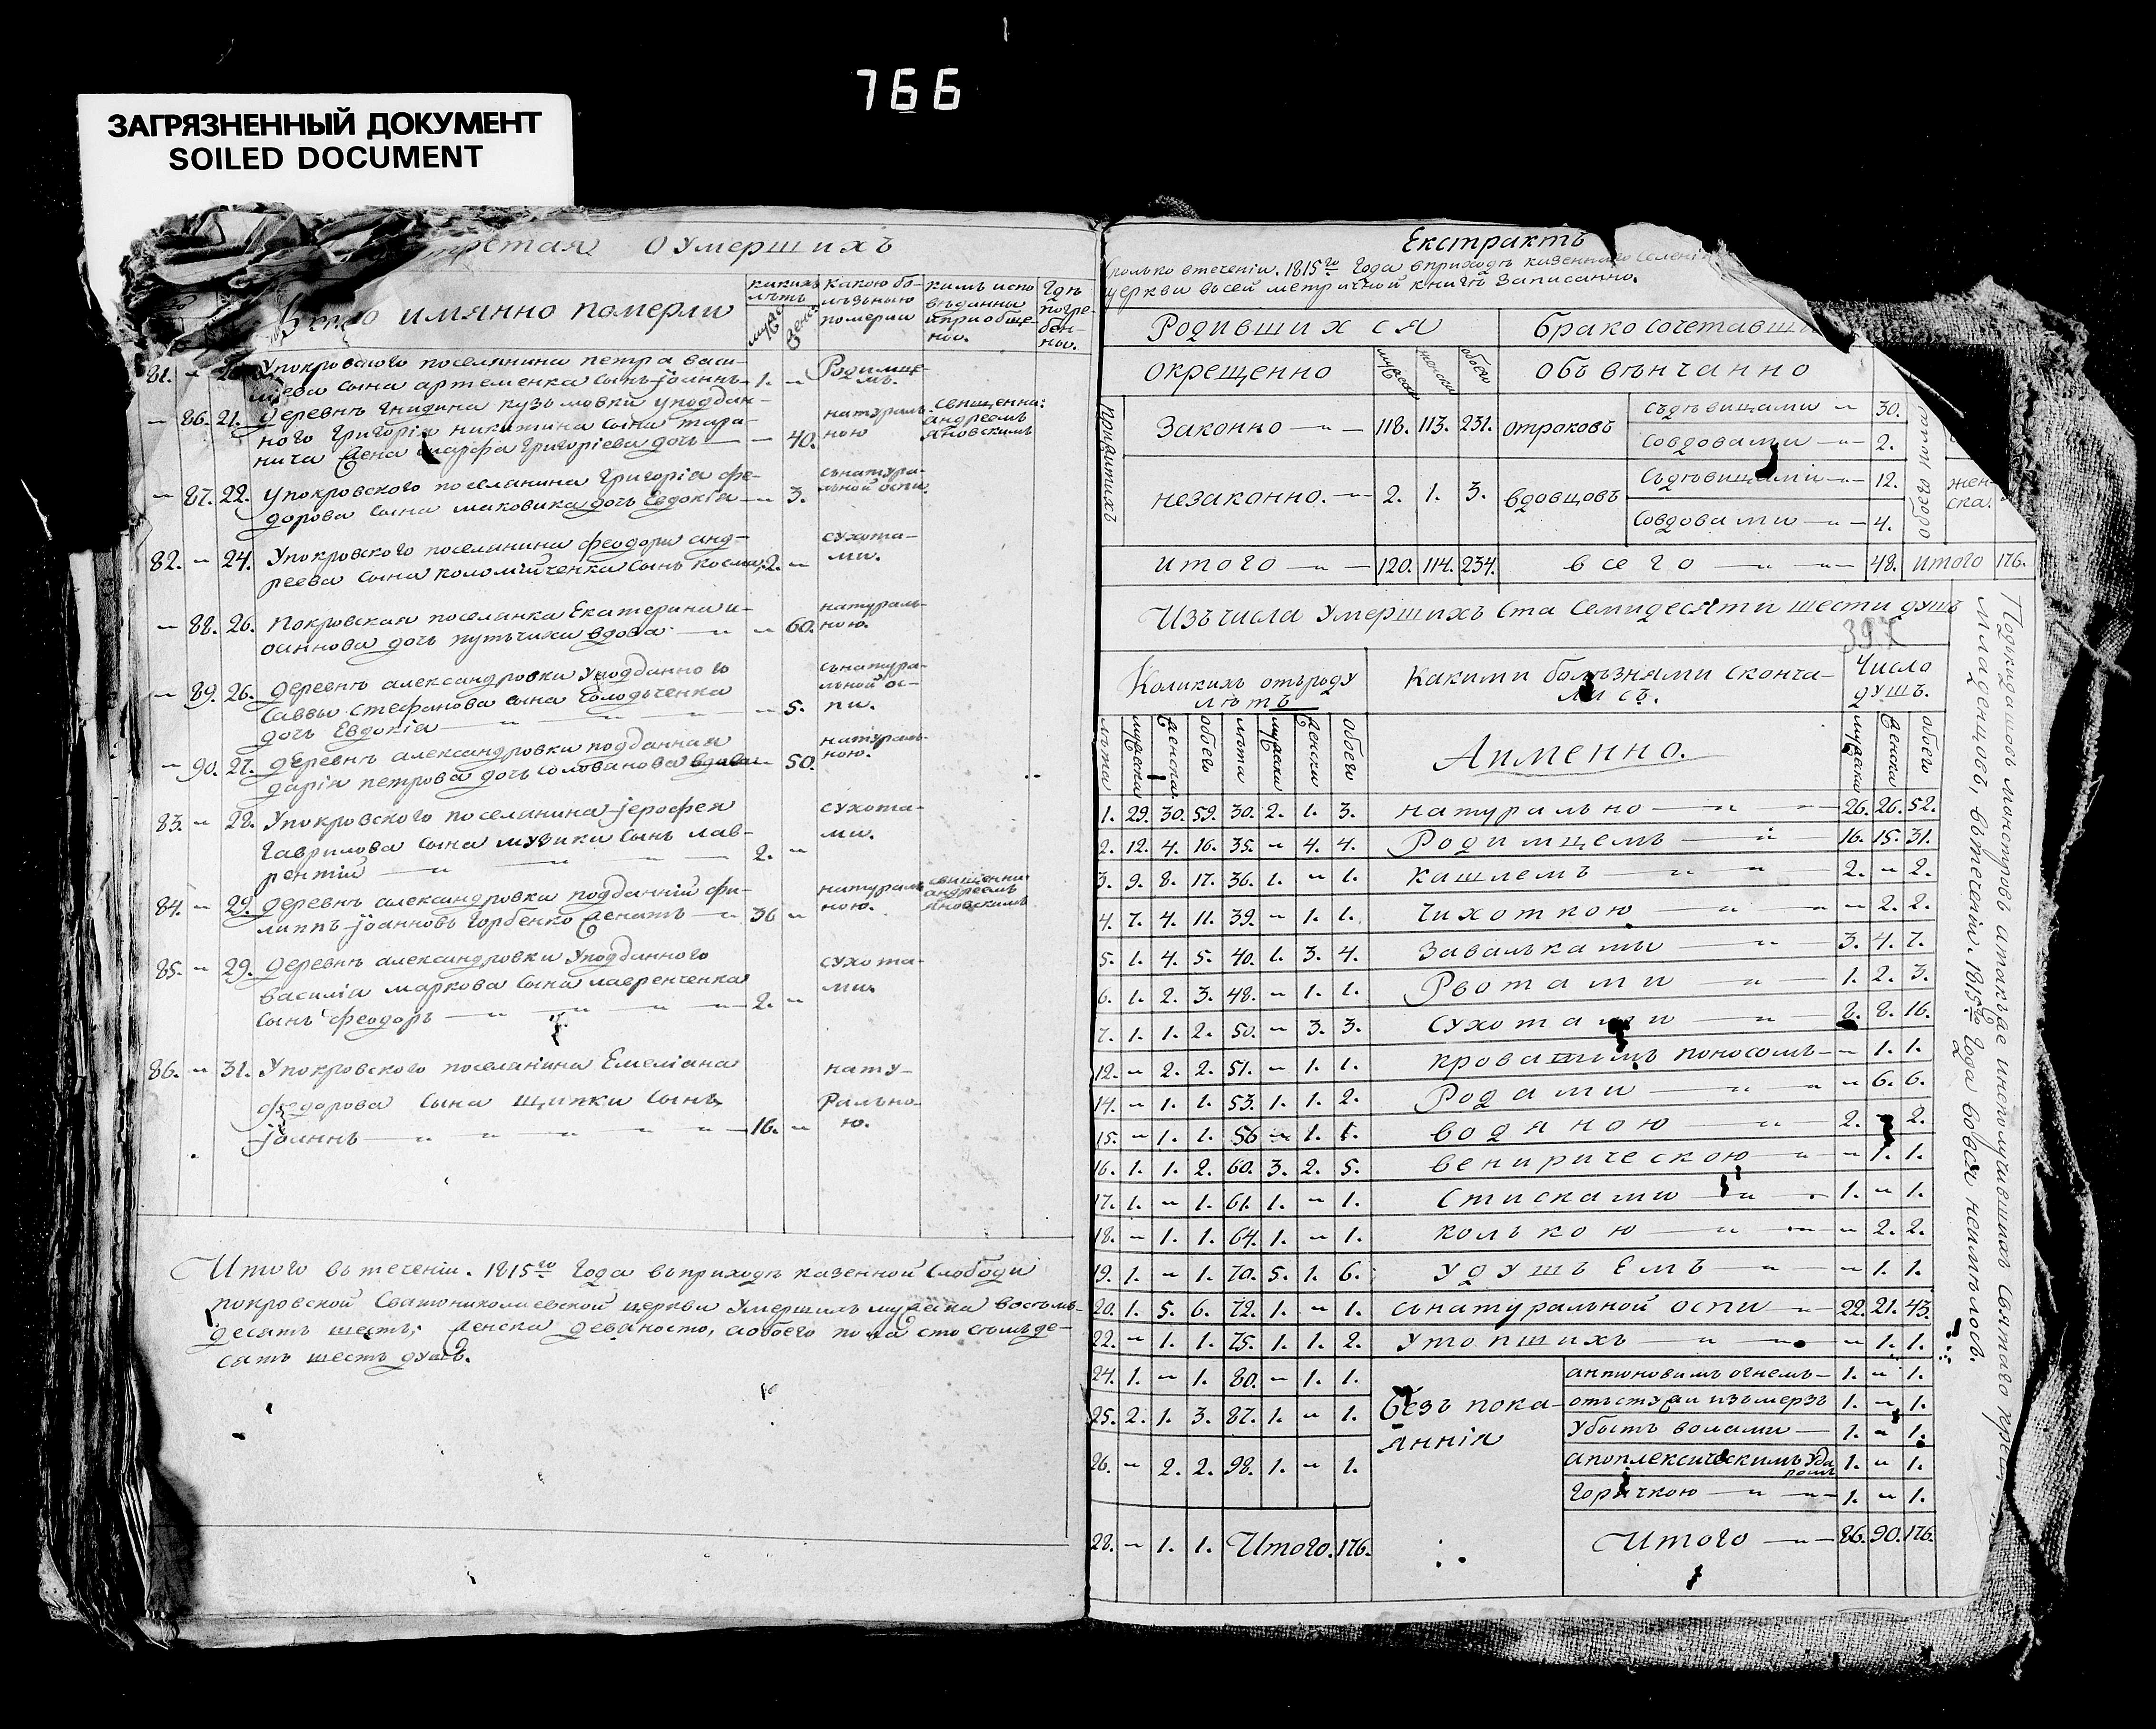 766
ЗАГРЯЗНЕННЫЙ ДОКУМЕНТ
SOILED DOCUMENT
о умершихъ
имянно померли
какихъ лѣтъ
какою болѣзнью померли
кимъ исповѣданы и приобщено.
Гдѣ погребены.
81. Упокровского поселянина петра васи-
лiева сына артеменка сынъ iоаннъ 1. Родимцемъ.
86. 21. Деревнѣ Гнидина кузьмовки уподдан-
ного Григорiя никитина сына тара-
нича Жена марфа Григорiева дочь 40. натуральною священни: андреемъ яновскимъ
87. 22. Упокровского поселянина Григорiя фе-
дорова сына маковика дочь Евдокiя 3. сънатуральной оспи.
82. 24. Упокровского поселянина феодора анд-
реева сына коломiйченка сынъ косма 2. сухотами.
88. 26. покровская поселянка Екатерина и-
оаннова дочь вдова 60. натуральною.
89. 26. Деревнѣ александровки уподданного
саввы стефанова сына
дочь Евдокiя 5. сънатуральной оспи.
90. 27. Деревнѣ александровки подданная
дарiя петрова дочь вдова 50. натуральною.
83. 28. Упокровского поселянина iерофея
гаврилова сына музики сынъ лав-
рентiй 2. сухотами.
84. 29. Деревнѣ александровки подданнiй фи-
липпъ iоанновъ Горбенко женатъ 36 натуральною. священни андреемъ яновскимъ
85. 29. Деревнѣ александровки уподданного
василiя маркова сына лавренченка
сынъ феодоръ 2. сухотами.
86. 31. Упокровского поселянина Емелiана
федорова сына щипки сынъ
iоаннъ 16. натуральною.
Итого втеченiи. 1815го Года вприходѣ казенной Слободи
покровской Святониколаевской церкви умершихъ мужеска восемь-
десятъ шесть, женска девяносто, аобоего пола сто семъде-
сятъ шесть душъ.
Екстрактъ
сколько втеченiи. 1815го Года вприходѣ казенного селенi
церкви въсей метричной книгѣ записанно.
Родившихся
бракосочетавши
окрещенно мужеска женска обоего
объвѣнчанно
Законно 118. 113. 231. отроковъ съдѣвицами 30.
совдовами 2.
незаконно. 2. 1. 3. вдовцовъ съдѣвицами 12.
совдовами 4.
обоего пола
женска.
итого 120. 114. 234. всего 48. итого 176.
Изъчисла умершихъ ста семидесяти шести душъ
397
Коликихъ отъроду лѣтъ
Какими болѣзнями скончались.
Число душъ.
лѣта мужеска женска обоего лѣта мужеска женска обоего
Аименно.
мужеска женска обоего
1. 29. 30. 59. 30. 2. 1. 3. натурально 26. 26. 52.
2. 12. 4. 16. 35. 4. 4. Родимцемъ 16. 15. 31.
3. 9. 8. 17. 36. 1. 1. кашлемъ 2. 2.
4. 7. 4. 11. 39. 1. 1. чихоткою 2. 2.
5. 1. 4. 5. 40. 1. 3. 4. Завалками 3. 4. 7.
6. 1. 2. 3. 48. 1. 1. Рвотами 1. 2. 3.
7. 1. 1. 2. 50. 3. 3. Сухотами 8. 8. 16.
12. 2. 2. 51. 1. 1. кровавимъ поносомъ 1. 1.
14. 1. 1. 53. 1. 1. 2. Родами 6. 6.
15. 1. 1. 56 1. 1. водяною 2. 2.
16. 1. 1. 2. 60. 3. 2. 5. венирическою 1. 1.
17. 1. 1. 61. 1. 1. Стисками 1. 1.
18. 1. 1. 64. 1. 1. колькою 2. 2.
19. 1. 1. 70. 5. 1. 6. удушьемъ 1. 1.
20. 1. 5. 6. 72. 1. 1. сънатуральной оспи 22. 21. 43.
22. 1. 1. 75. 1. 1. 2. Утопшихъ 1. 1.
24. 1. 1. 80. 1. 1. Безъ пока- антоновимъ огнемъ 1. 1.
25. 2. 1. 3. 87. 1. 1. яннiя отъстужи изъмерзъ 1. 1.
Убытъ волами 1. 1.
26. 2. 2. 98. 1. 1. апоплексическимъ ударомъ 1. 1.
Горячкою 1. 1.
28. 1. 1. Итого. 176. Итого 86. 90. 176.
младенцовъ, вътеченiи. 1815го Года вовся неимѣлось.